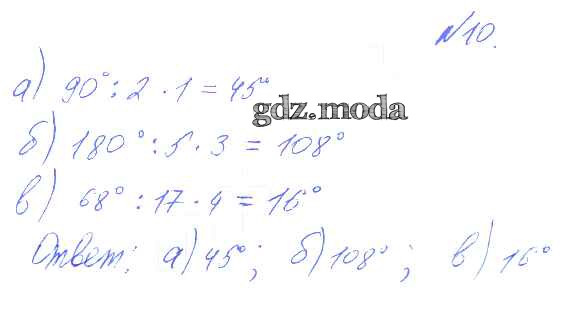 №10.
а) 90° : 2 · 1 = 45°
gdz.moda
б) 180° : 5 · 3 = 108°
в) 68° : 17 · 4 = 16°
Ответ: а) 45°; б) 108°; в) 16°